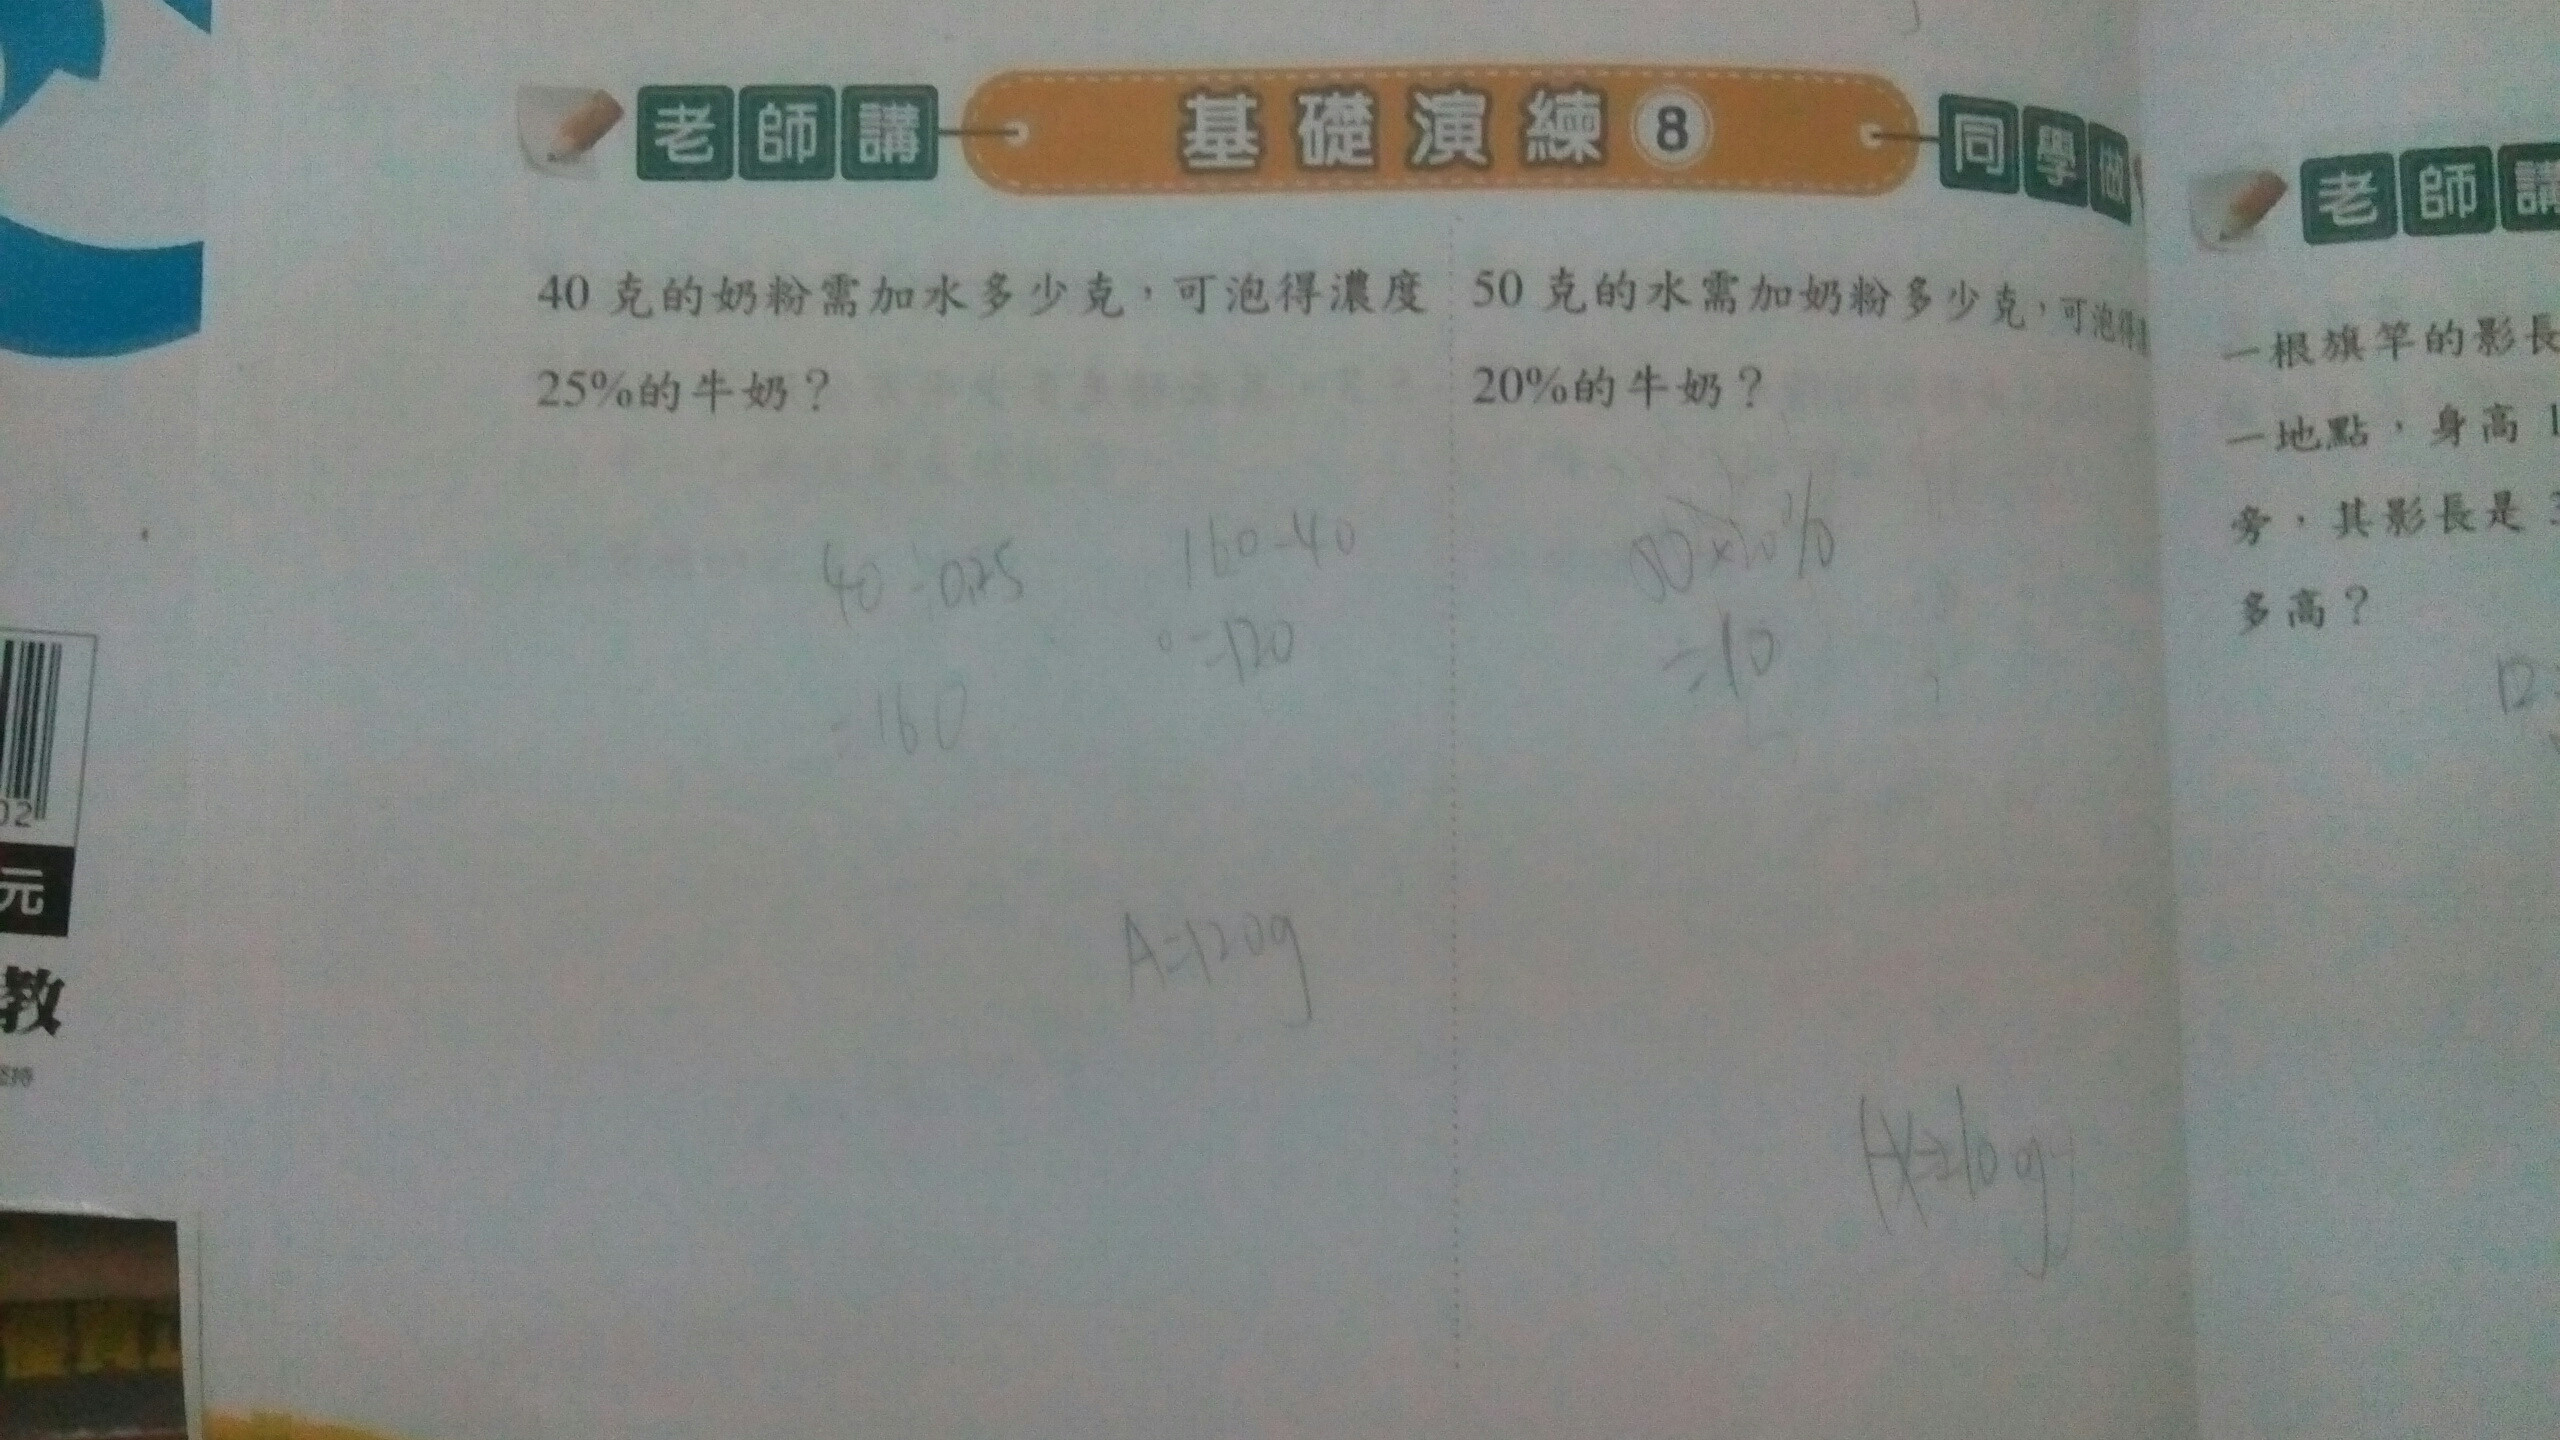 老師講
基礎演練 8
同學做
40 克的奶粉需加水多少克，可泡得濃度
25%的牛奶？
40÷0.25
=160
160-40
=120
A=120g
50 克的水需加奶粉多少克，可泡得
20%的牛奶？
=10
老師講
一根旗竿的影長
一地點，身高 1
旁，其影長是 3
多高？
12
02
元
教